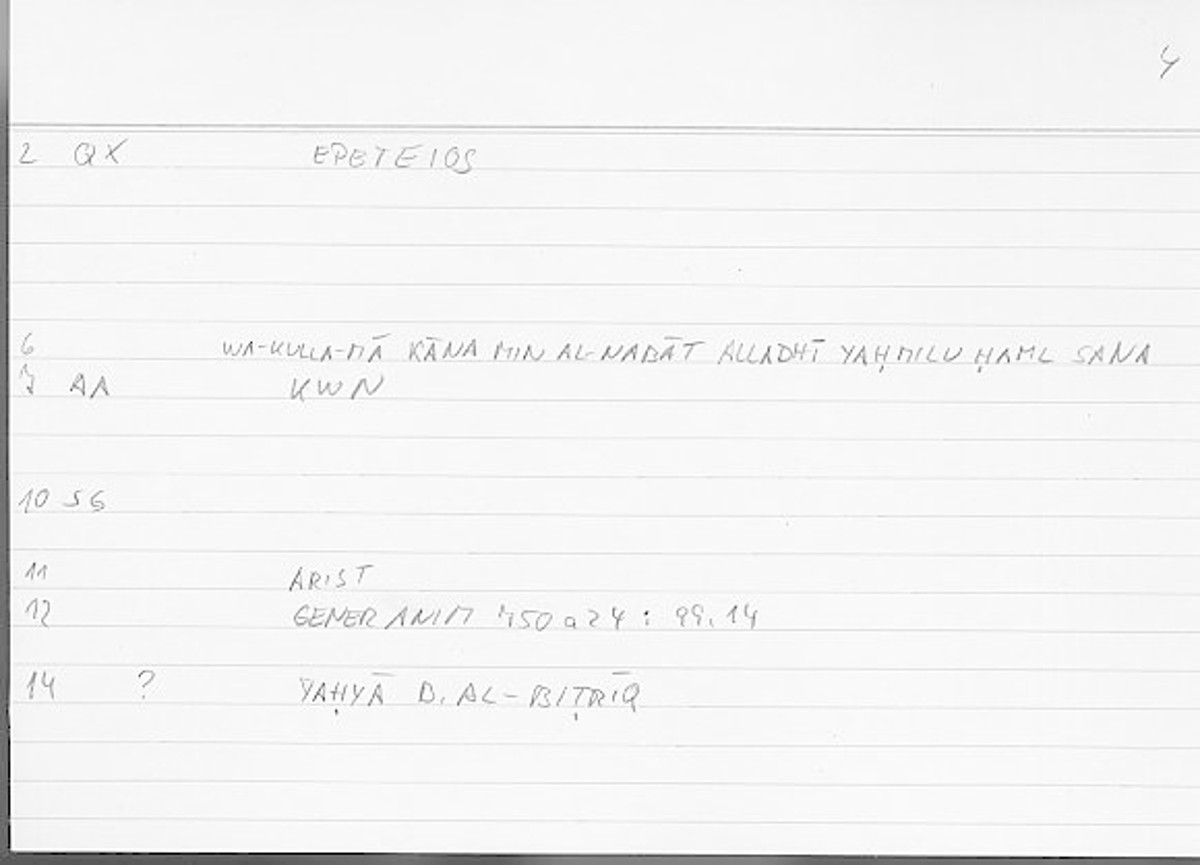 4
2 QX EPETEIOS
6 WA-KULLA-MĀ KĀNA MIN AL-NABĀT ALLADHĪ YAḤMILU ḤAML SANA
7 AA KWN
10 SG
11 ARIST
12 GENER ANIM 750 a 24 : 99.14
14 ? YAḤYĀ B. AL-BIṬRĪQ